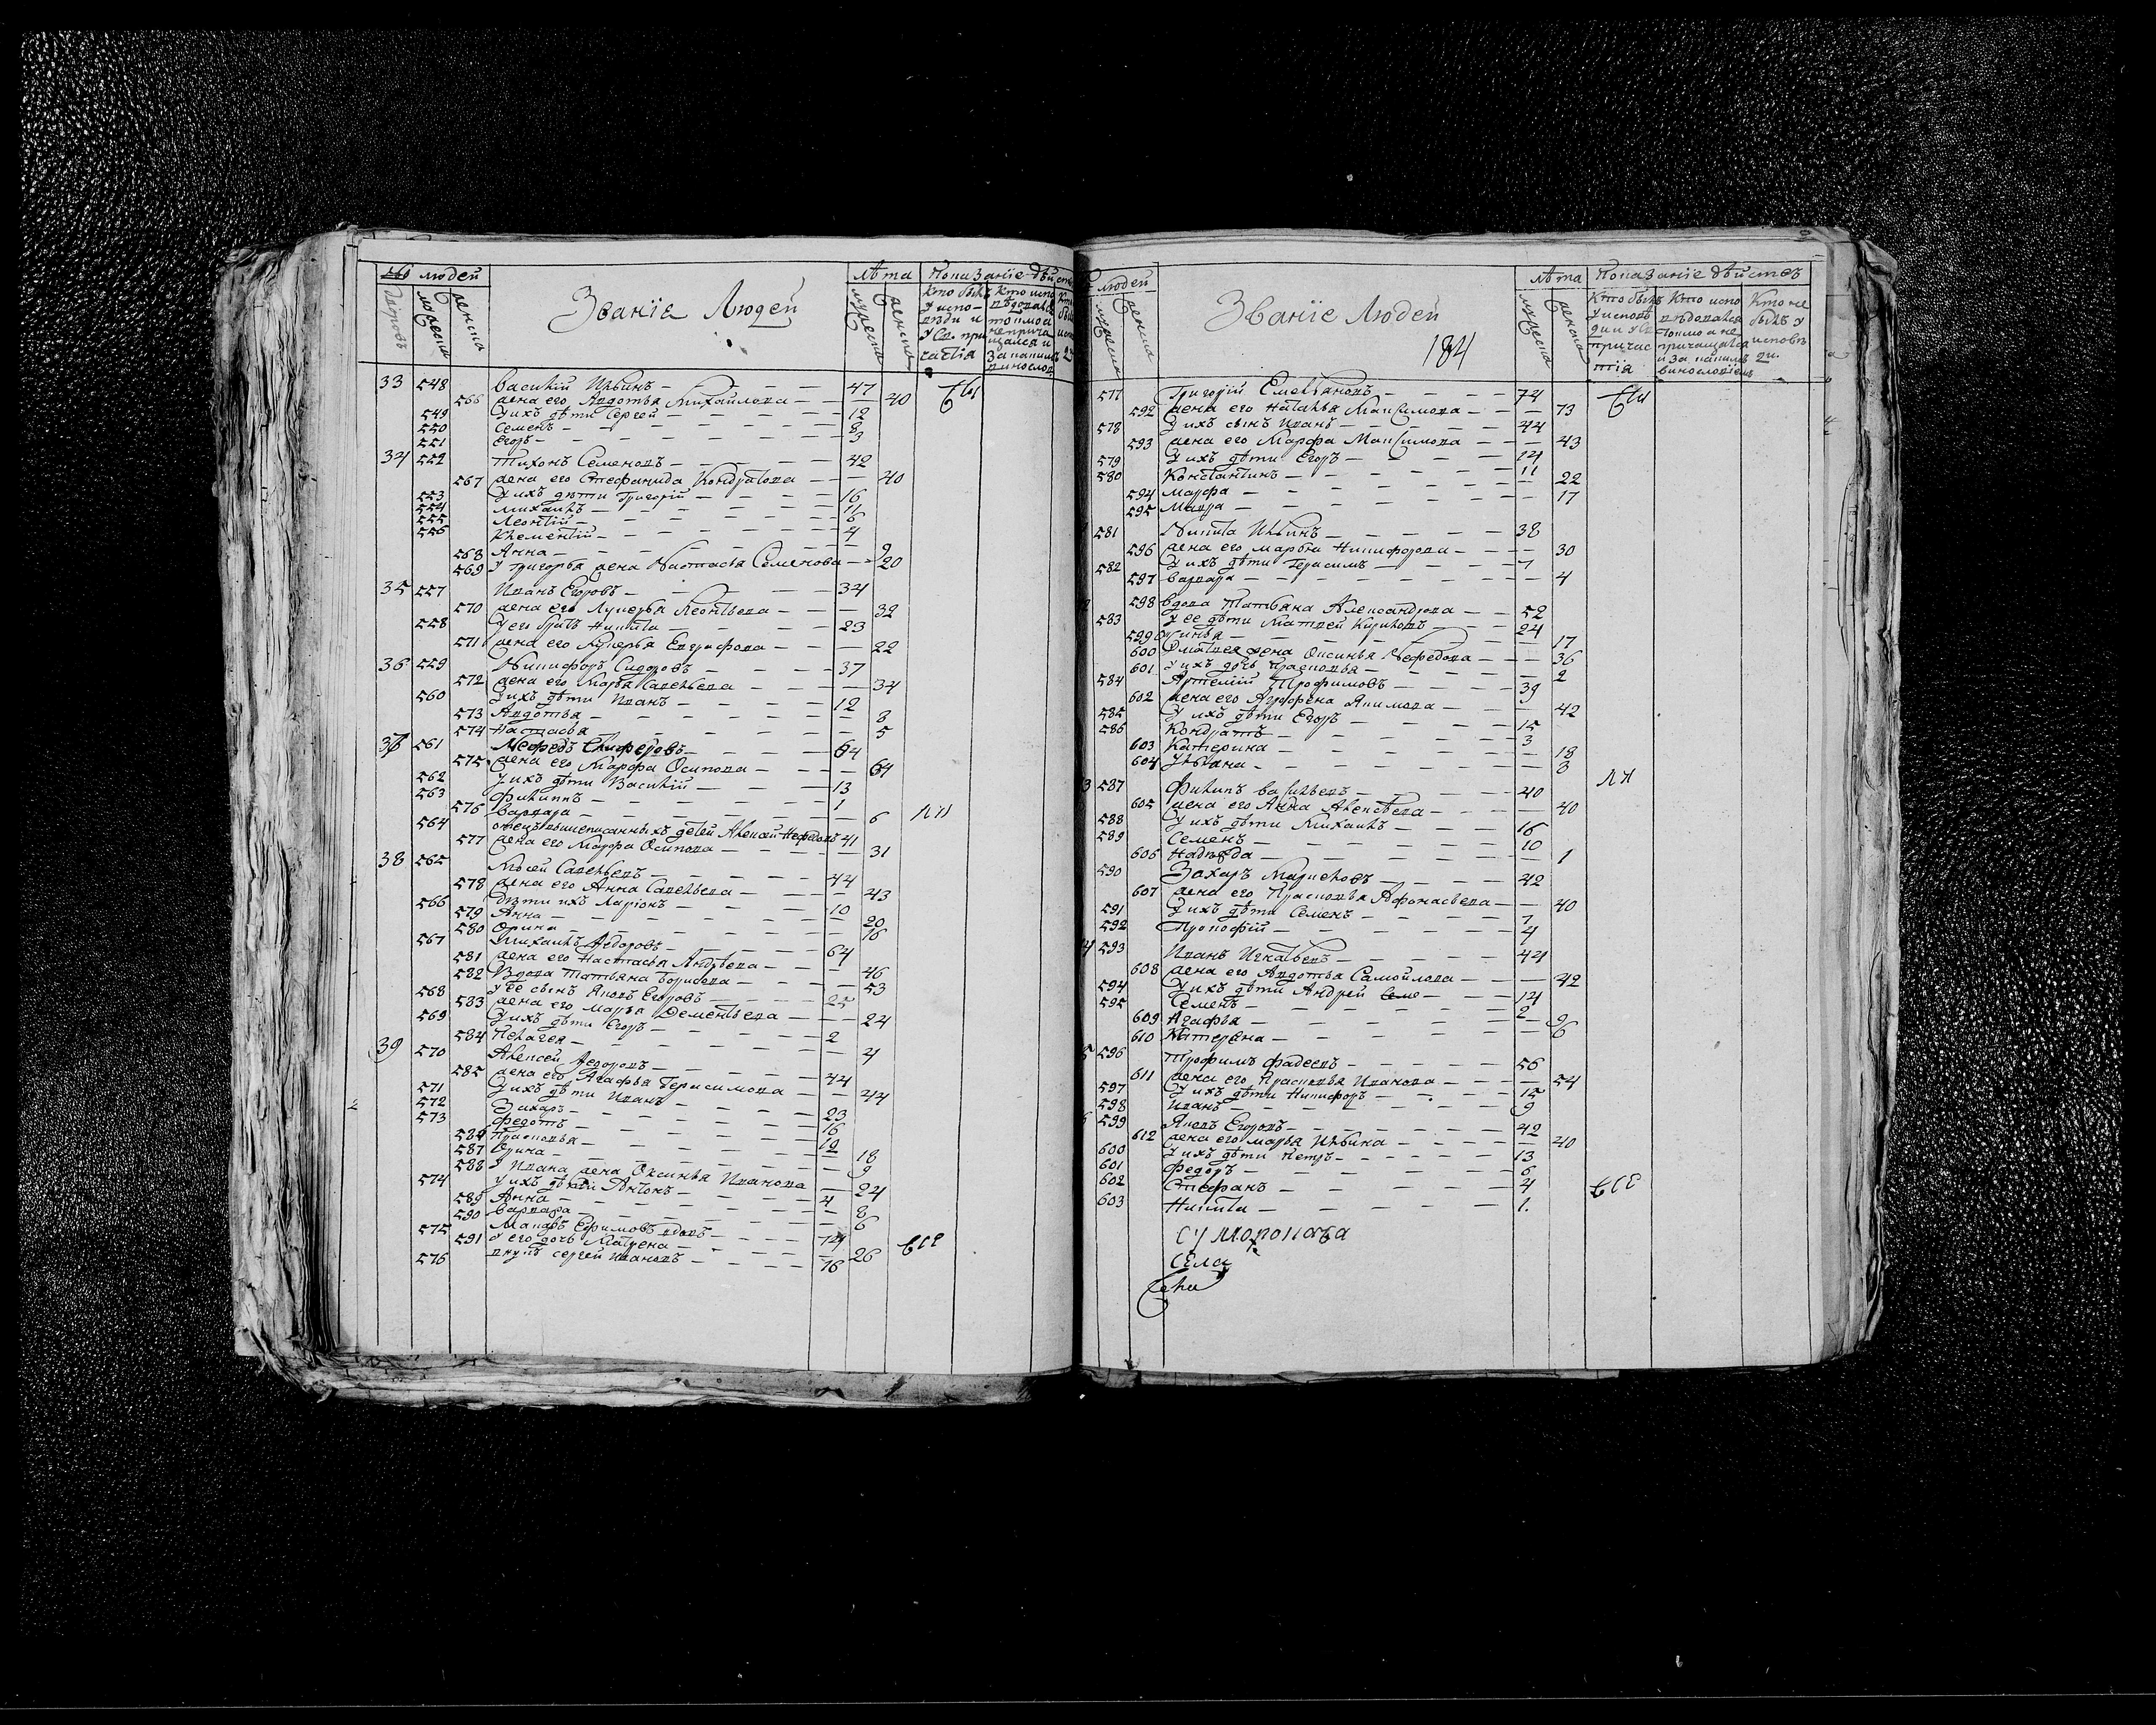 людей
Званїе Людей
лѣта
Показанїе дѣйствъ
дворовъ
мужеска
женска
мужеска
женска
33 548 Василїй Ильинъ 47
566 жена его Авдотья Михайлова 40
549 у ихъ дѣти Сергей 12
550 Семенъ 8
551 Егоръ 3
34 552 Тихонъ Семеновъ 42
567 жена его Стефанида Кондратова 40
553 у ихъ дѣти Григорїй 16
554 Михаилъ 11
555 Леонтїй 6
556 Клементїй 4
568 Анна 9
569 у Григорья жена Настасья Семенова 20
35 557 Иванъ Егоровъ 34
570 жена его Лукерья Леонтьева 32
558 у его братъ Никита 23
571 жена его Лукерья Евграфова 22
36 559 Никифоръ Сидоровъ 37
572 жена его Марья Савельева 34
560 у ихъ дѣти Иванъ 12
573 Авдотья 8
574 Настасья 5
37 561 Мефедъ 64
575 жена его Марфа Осипова 64
562 у ихъ дѣти Василїй 13
563 Филиппъ 1
576 Варвара 6
564 отецъ вышеписанныхъ детей Алексей Нефедовъ 41
577 жена его Марфа Осипова 31
38 565 Мосей Савельевъ 44
578 жена его Анна Савельева 43
566 дѣти ихъ Ларїонъ 10
579 Анна 20
580 Орина 16
567 Михаилъ Федоровъ 64
581 жена его Настасья Андрѣева 46
582 Вдова Татьяна Борисова 53
568 у ее сынъ Яковъ Егоровъ 25
583 жена его Марья Дементьева 24
569 у ихъ дѣти Егоръ 2
584 Пелагея 4
39 570 Алексей Федоровъ 44
585 жена его Агафья Герасимова 44
571 у ихъ дѣти Иванъ 23
572 Захаръ 16
573 Федотъ 12
586 Прасковья 18
587 Орина 9
588 у Ивана жена Оксинья Иванова 24
574 у ихъ дѣти Антонъ 4
589 Анна 8
590 Варвара 6
575 Макаръ Ефимовъ вдовъ 74
591 у его дочь Матрена 26
576 внукъ Сергей Ивановъ 16
людей
Званїе Людей
184
лѣта
Показанїе дѣйствъ
мужеска
женска
мужеска
женска
Кто былъ у исповѣди и у Св. причастїя
Кто исповѣдовался токмо а не причащался и за какимъ винословїемъ
Кто не былъ у исповѣди.
577 Григорїй Емельяновъ 74
592 жена его Наталья Максимова 73
578 у ихъ сынъ Иванъ 44
593 жена его Марфа Максимова 43
579 у ихъ дѣти Егоръ 14
580 Константинъ 11
594 Марфа 22
595 Мавра 17
581 Никита Ильинъ 38
596 жена его Марья Никифорова 30
582 у ихъ дѣти Герасимъ 7
597 Варвара 4
598 Вдова Татьяна Александрова 52
583 у ее дѣти Матвей Кириловъ 24
599 17
600 жена Оксинья Нефедова 36
601 у ихъ дочь Прасковья 2
584 Артемїй Трофимовъ 39
602 жена его Агрофена Якимова 42
585 у ихъ дѣти Егоръ 15
586 Кондратъ 3
603 Катерина 18
604 Ульяна 8
587 Филипъ Васильевъ 40
605 жена его Анна Алексѣева 40
588 у ихъ дѣти Михаилъ 16
589 Семенъ 10
606 Надежда 1
590 Захаръ Маркеловъ 42
607 жена его Прасковья Афонасьева 40
591 у ихъ дѣти Семенъ 7
592 Прокофїй 4
593 Иванъ Игнатьевъ 44
608 жена его Авдотья Самойлова 42
594 у ихъ дѣти Андрей 14
595 Семенъ 2
609 Агафья 9
610 Катерина 6
596 Трофимъ Фадеевъ 56
611 жена его Прасковья Иванова 54
597 у ихъ дѣти Никифоръ 15
598 Иванъ 9
599 Яковъ Егоровъ 42
612 жена его Марья Ильина 40
600 у ихъ дѣти Петръ 13
601 Федоръ 6
602 Стефанъ 4
603 Никита 1.
Села